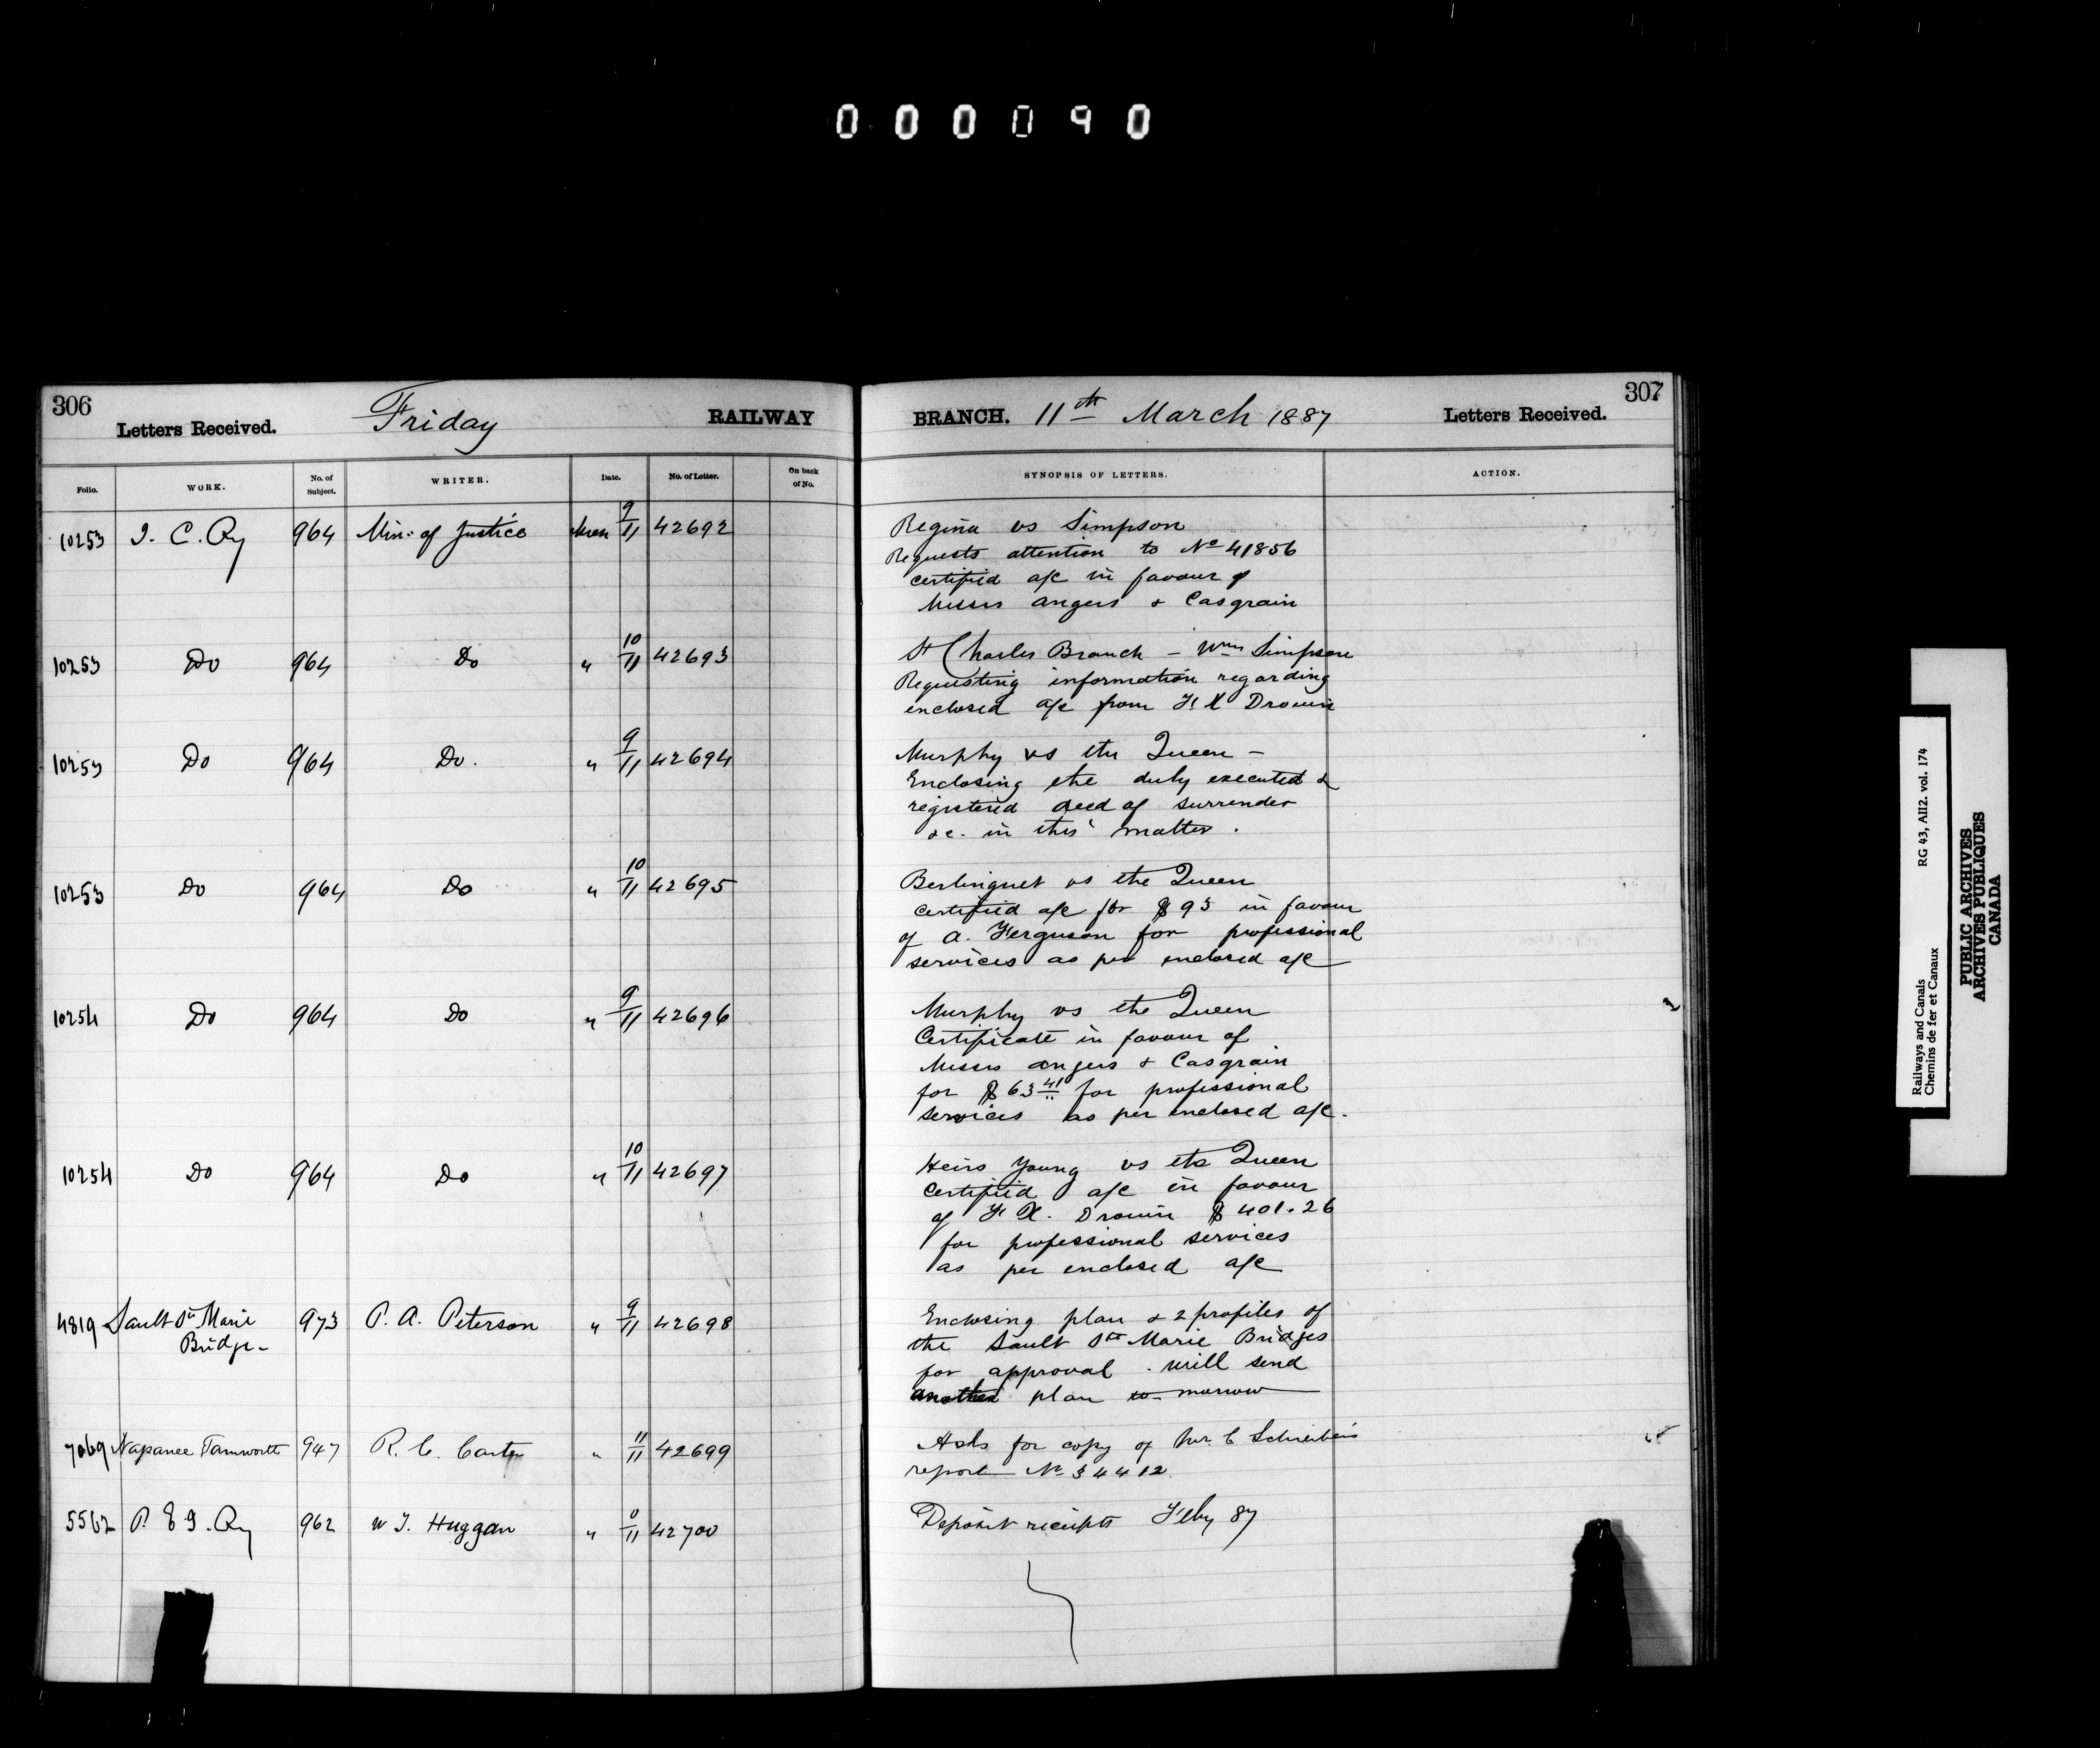 000090
306
Letters Received.
Friday
RAILWAY
BRANCH. 11th March 1887
Letters Received.
307
Folio. WORK. No. of Subject. WRITER. Date. No. of Letter. On back of No. SYNOPSIS OF LETTERS. ACTION.
10253 I. C. Ry 964 Min. of Justice 9/11 42692
Regina vs Simpson
Requests attention to No 41856
certified a/c in favour of
Messrs Angers & Casgrain
10253 Do 964 Do " 10/11 42693
St Charles Branch - Wm Simpson
Requesting information regarding
enclosed a/c from F. X Drouin
10253 Do 964 Do. " 9/11 42694
Murphy vs the Queen -
Enclosing the duly executed &
registered deed of surrender
&c. in this matter.
10253 Do 964 Do " 10/11 42695
Berlinguet vs the Queen
certified a/c for $93 in favour
of A. Ferguson for professional
services as per enclosed a/c
10254 Do 964 Do " 9/11 42696
Murphy vs the Queen
Certificate in favour of
Messrs Angers & Casgrain
for $63 41 for professional
services as per enclosed a/c.
10254 Do 964 Do " 10/11 42697
Heirs Young vs the Queen
certified a/c in favour
of F. X. Drouin $401.26
for professional services
as per enclosed a/c
4819 Sault Ste Marie 973 P. A. Peterson " 9/11 42698
Bridge-
Enclosing plan & 2 profiles of
the Sault Ste Marie Bridges
for approval. will send
another plan to-morrow
7069 Napanee Tamworth 947 R. C. Carter " 11/11 42699
Asks for copy of Mr. C Schreiber's
report No 34412.
5562 P. E I. Ry 962 W T. Huggan " 42700
Deposit receipts Feby 87
Railways and Canals RG 43, AII2. vol. 174
Chemins de fer et Canaux
PUBLIC ARCHIVES
ARCHIVES PUBLIQUES
CANADA